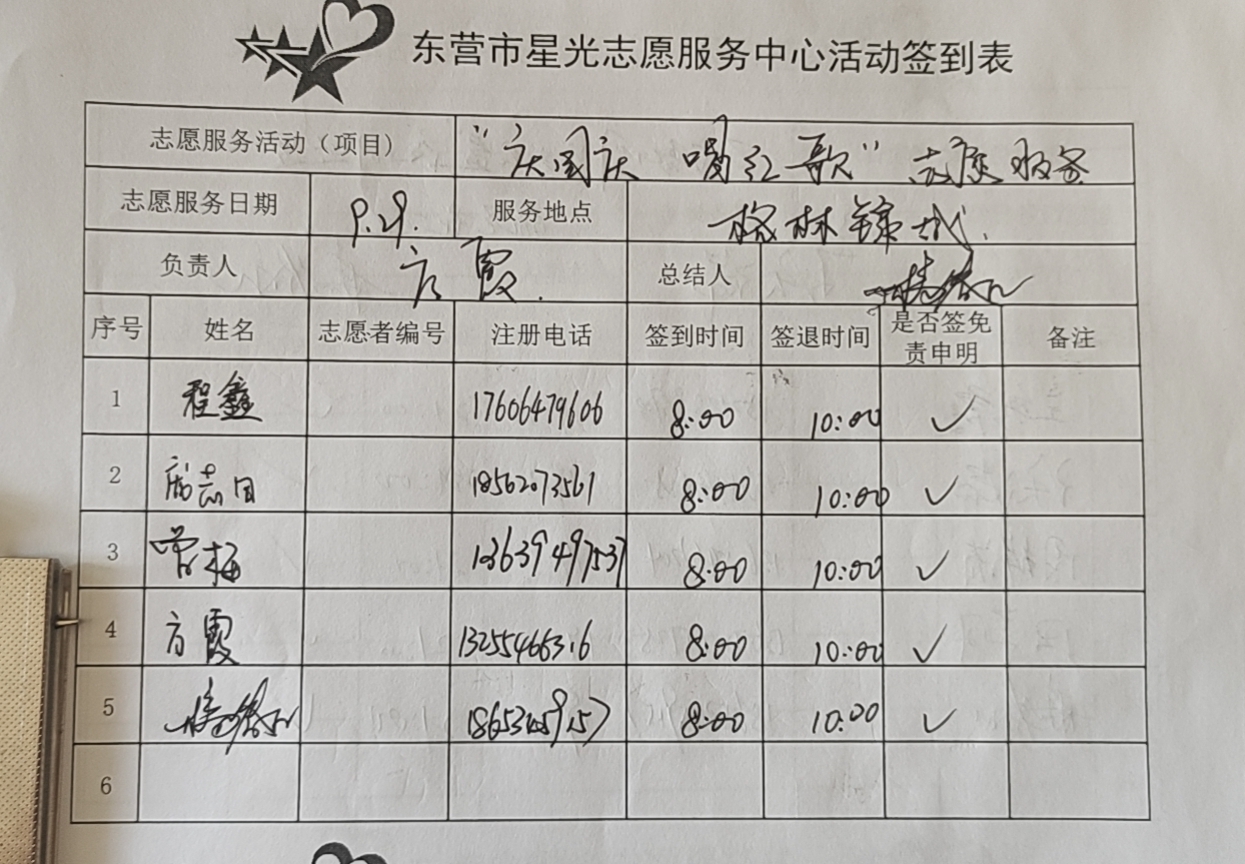 东营市星光志愿服务中心活动签到表
志愿服务活动（项目） "庆国庆 唱红歌"志愿服务
志愿服务日期 9.29. 服务地点 格林锦城.
负责人 方霞. 总结人
序号 姓名 志愿者编号 注册电话 签到时间 签退时间 是否签免责申明 备注
1 程鑫 17606479606 8:00 10:00 ✓
2 18562073561 8:00 10:00 ✓
3 曾梅 13639497537 8:00 10:00 ✓
4 方霞 8:00 10:00 ✓
5 8:00 10:00 ✓
6